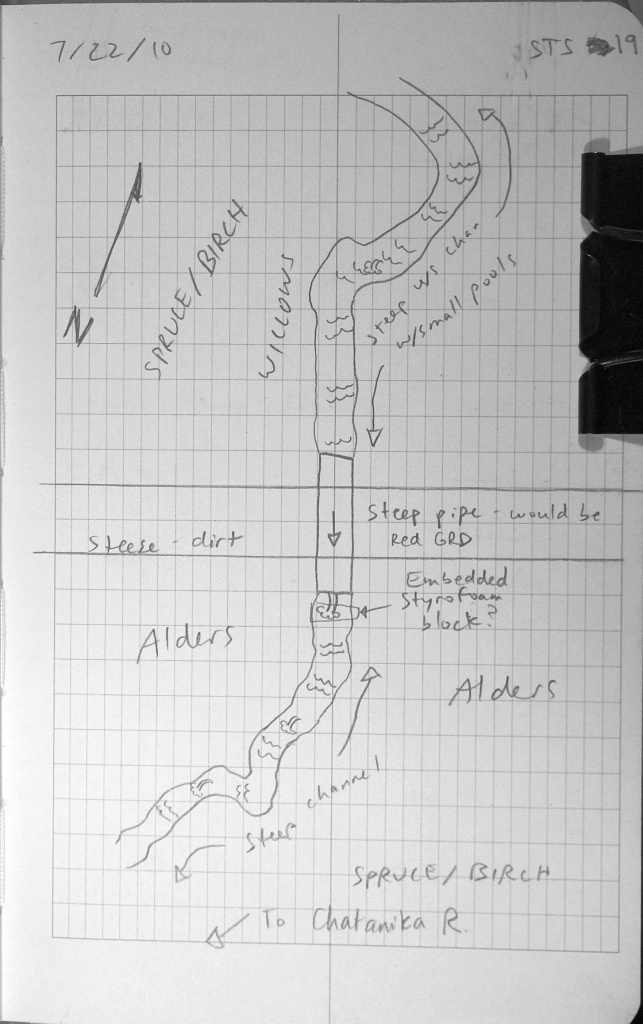 7/22/10
STS 19
N
SPRUCE/BIRCH
WILLOWS
Steep u/s chan
w/small pools
Steep pipe - would be
Red GRD
Steese - dirt
Embedded
Styrofoam
block?
Alders
Alders
Steep channel
SPRUCE/BIRCH
To Chatanika R.